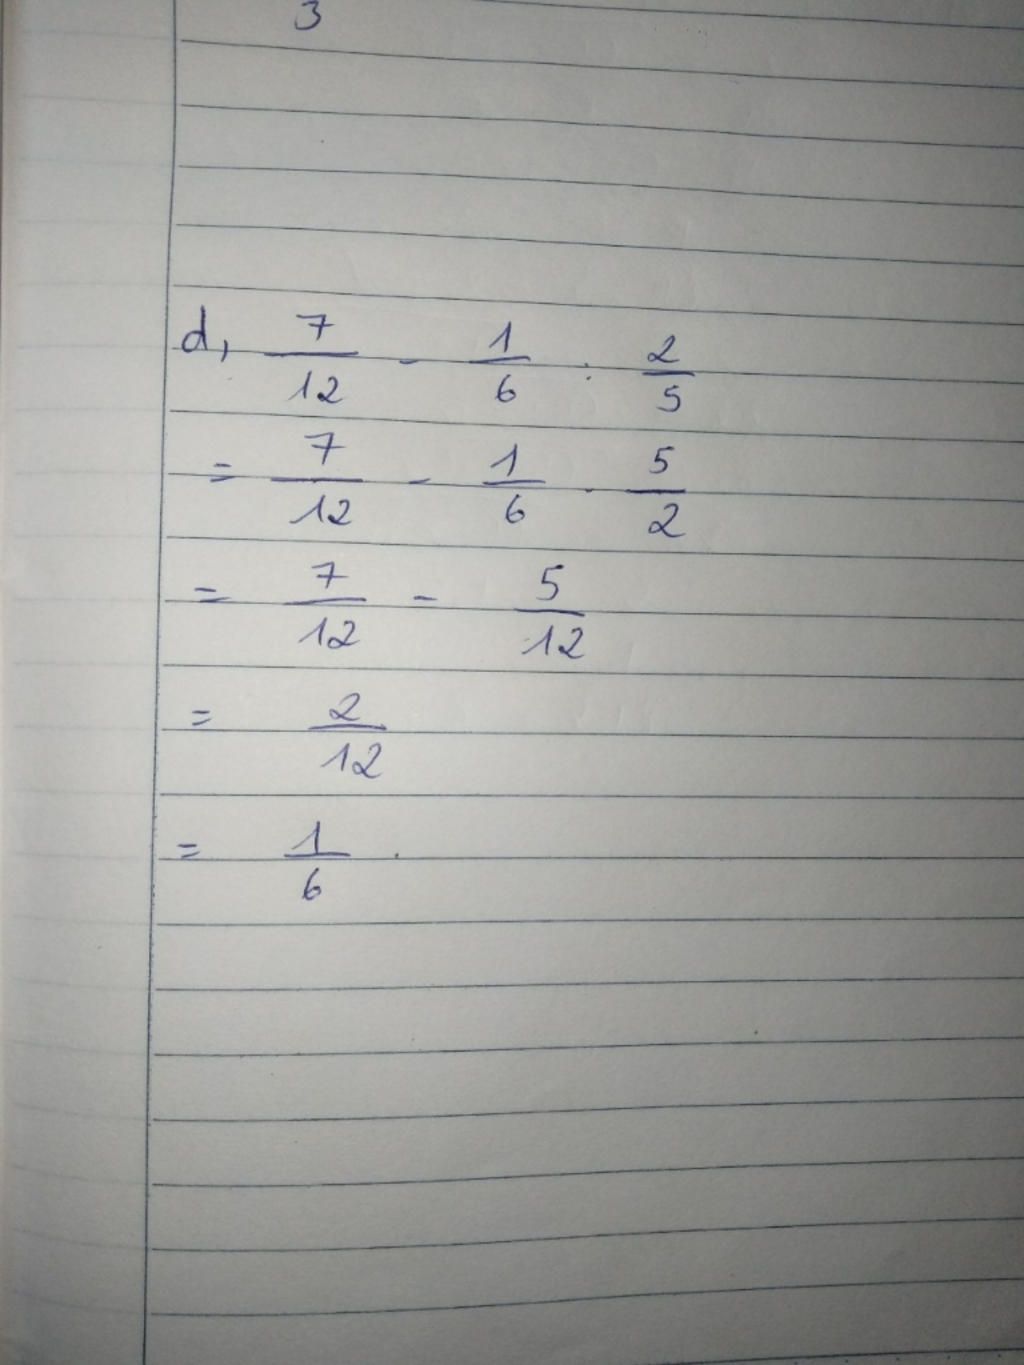 3
d, 7/12 - 1/6 : 2/5
= 7/12 - 1/6 . 5/2
= 7/12 - 5/12
= 2/12
= 1/6 .